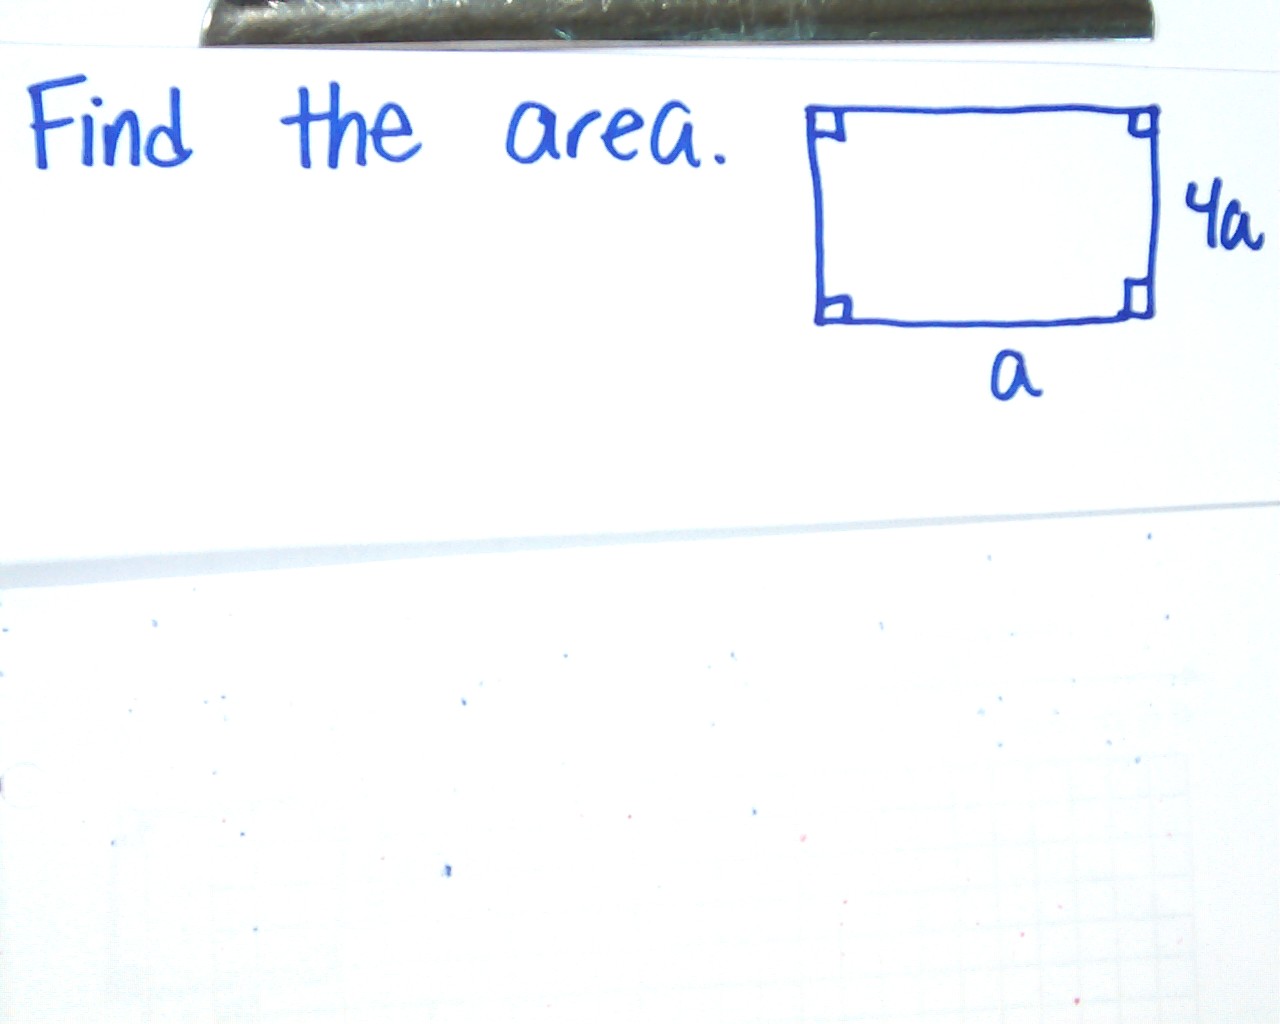 Find the area.
4a
a